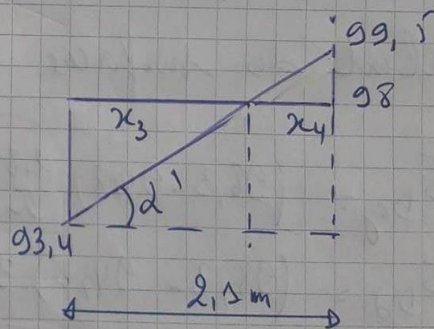 99,5
98
x₃
x₄
α'
93,4
2,1 m